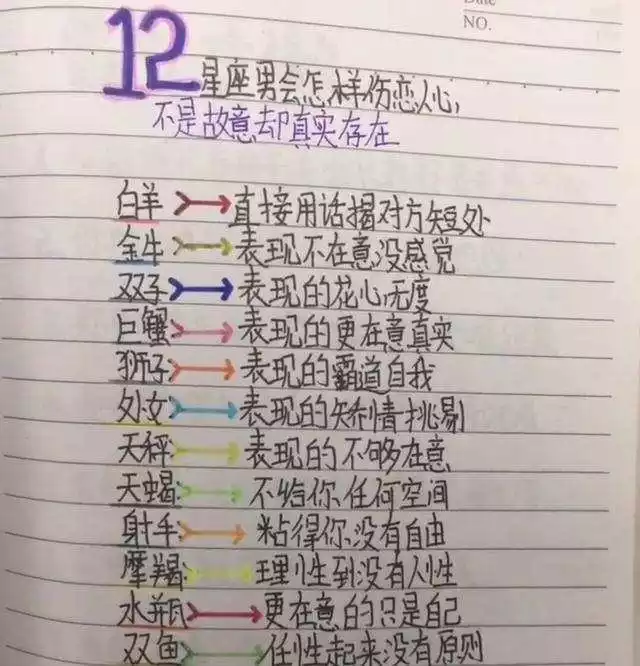 NO.
12星座男会怎样伤恋人心,
不是故意却真实存在
白羊 直接用话揭对方短处
金牛 表现不在意没感觉
双子 表现的花心无度
巨蟹 表现的更在意真实
狮子 表现的霸道自我
处女 表现的矫情挑剔
天秤 表现的不够在意
天蝎 不给你任何空间
射手 粘得你没有自由
摩羯 理性到没有人性
水瓶 更在意的只是自己
双鱼 任性起来没有原则